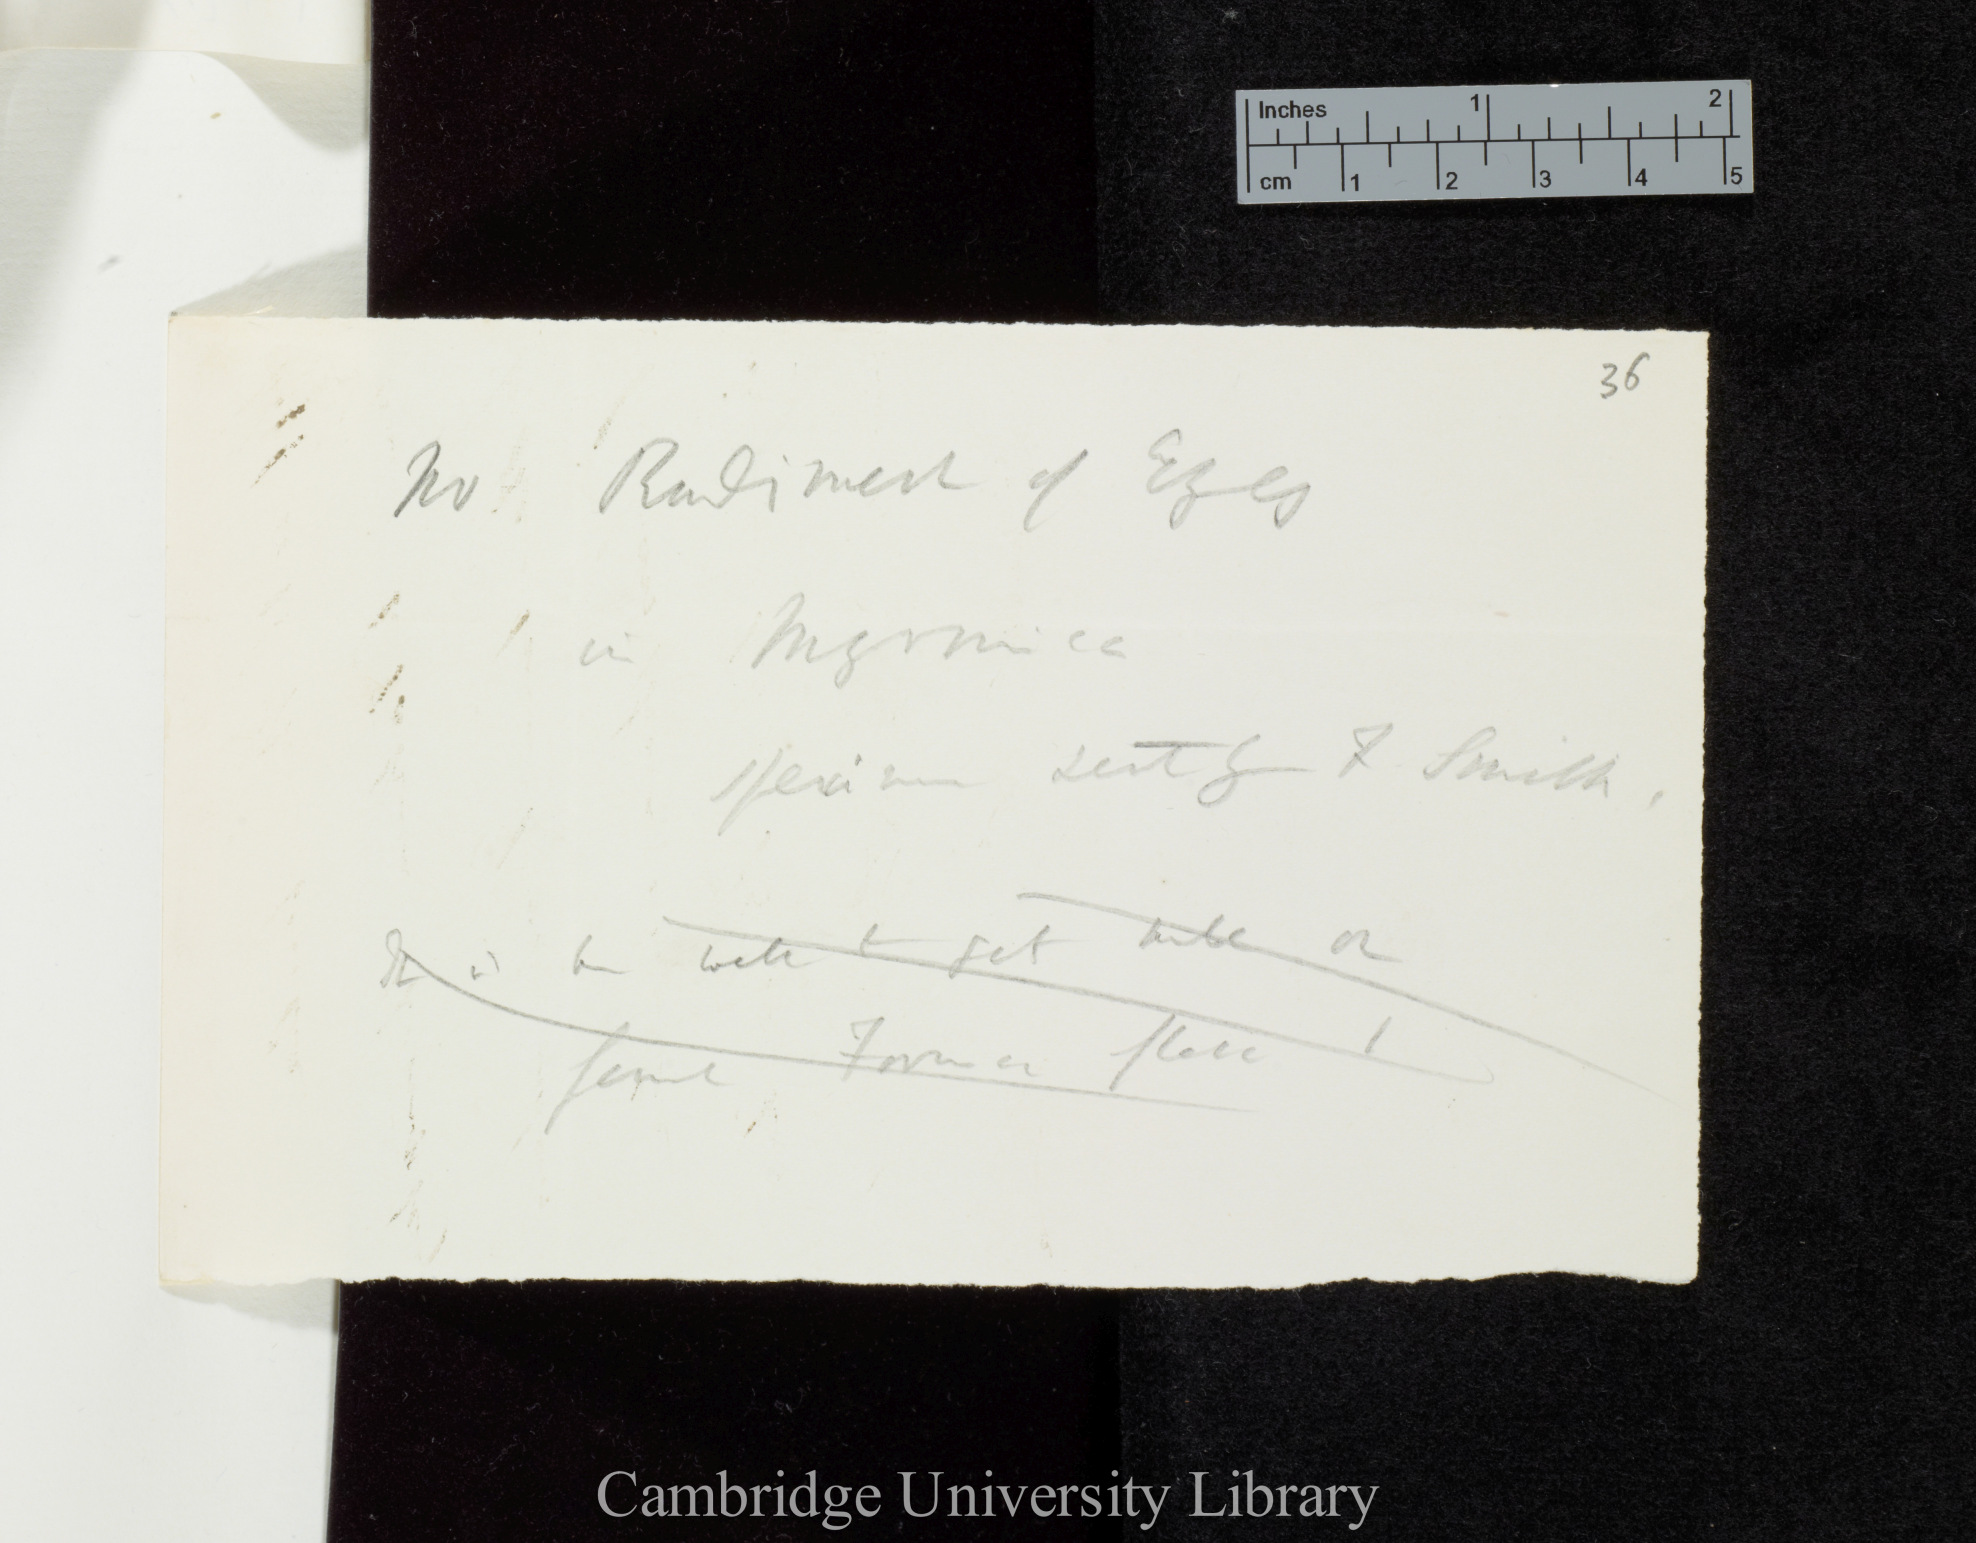 Inches 1 2
cm 1 2 3 4 5
36
No Rudiment of Eyes
in Myrmica
specimen sent by F Smith.
It is
well to get or
some Former
Cambridge University Library